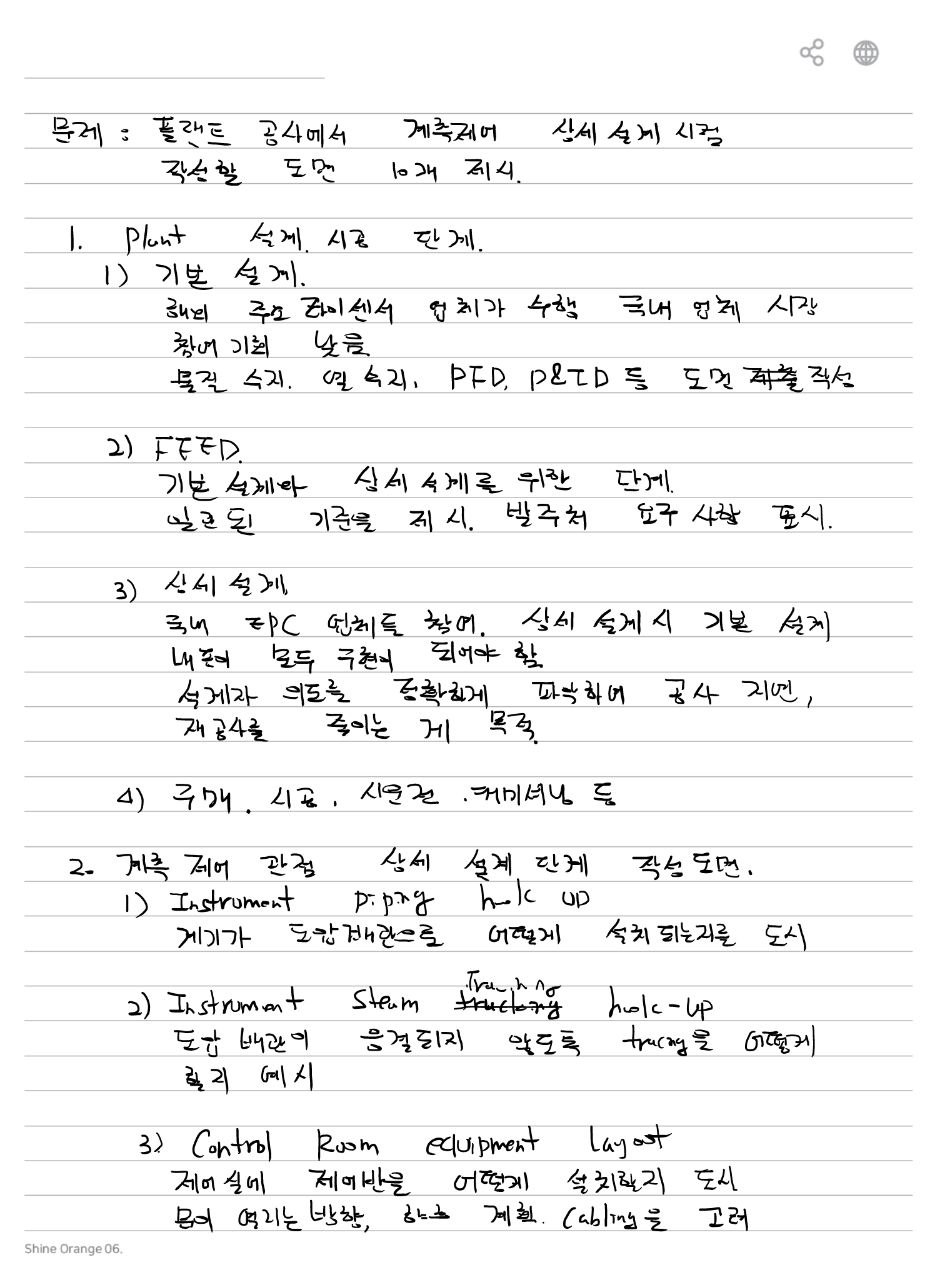 문제 : 플랜트 공사에서 계측제어 상세 설계 시점
작성할 도면 10개 제시.
1. Plant 설계. 시공 단계.
1) 기본 설계.
해외 주요 라이센서 업체가 수행 국내 업체 시장
참여 기회 낮음
물질 수지. 열 수지. PFD, P&ID 등 도면 제출 작성
2) FEED.
기본 설계와 상세 설계를 위한 단계.
일관된 기준을 제시. 발주처 요구 사항 표시.
3) 상세 설계
국내 EPC 업체들 참여. 상세 설계 시 기본 설계
내용이 모두 구현이 되어야 함
설계자 의도를 정확하게 파악하여 공사 지연,
재공사를 줄이는 게 목적.
4) 구매. 시공. 시운전. 커미셔닝 등
2. 계측 제어 관점 상세 설계 단계 작성 도면.
1) Instrument piping hook up
계기가 도압배관으로 어떻게 설치 되는지를 도시
2) Instrument Steam Tracing hook-up
도압 배관이 응결되지 않도록 tracing을 어떻게
할 지 예시
3) Control Room equipment layout
제어실에 제어반을 어떻게 설치할지 도시
문이 열리는 방향, 향후 계획. Cabling을 고려
Shine Orange 06.